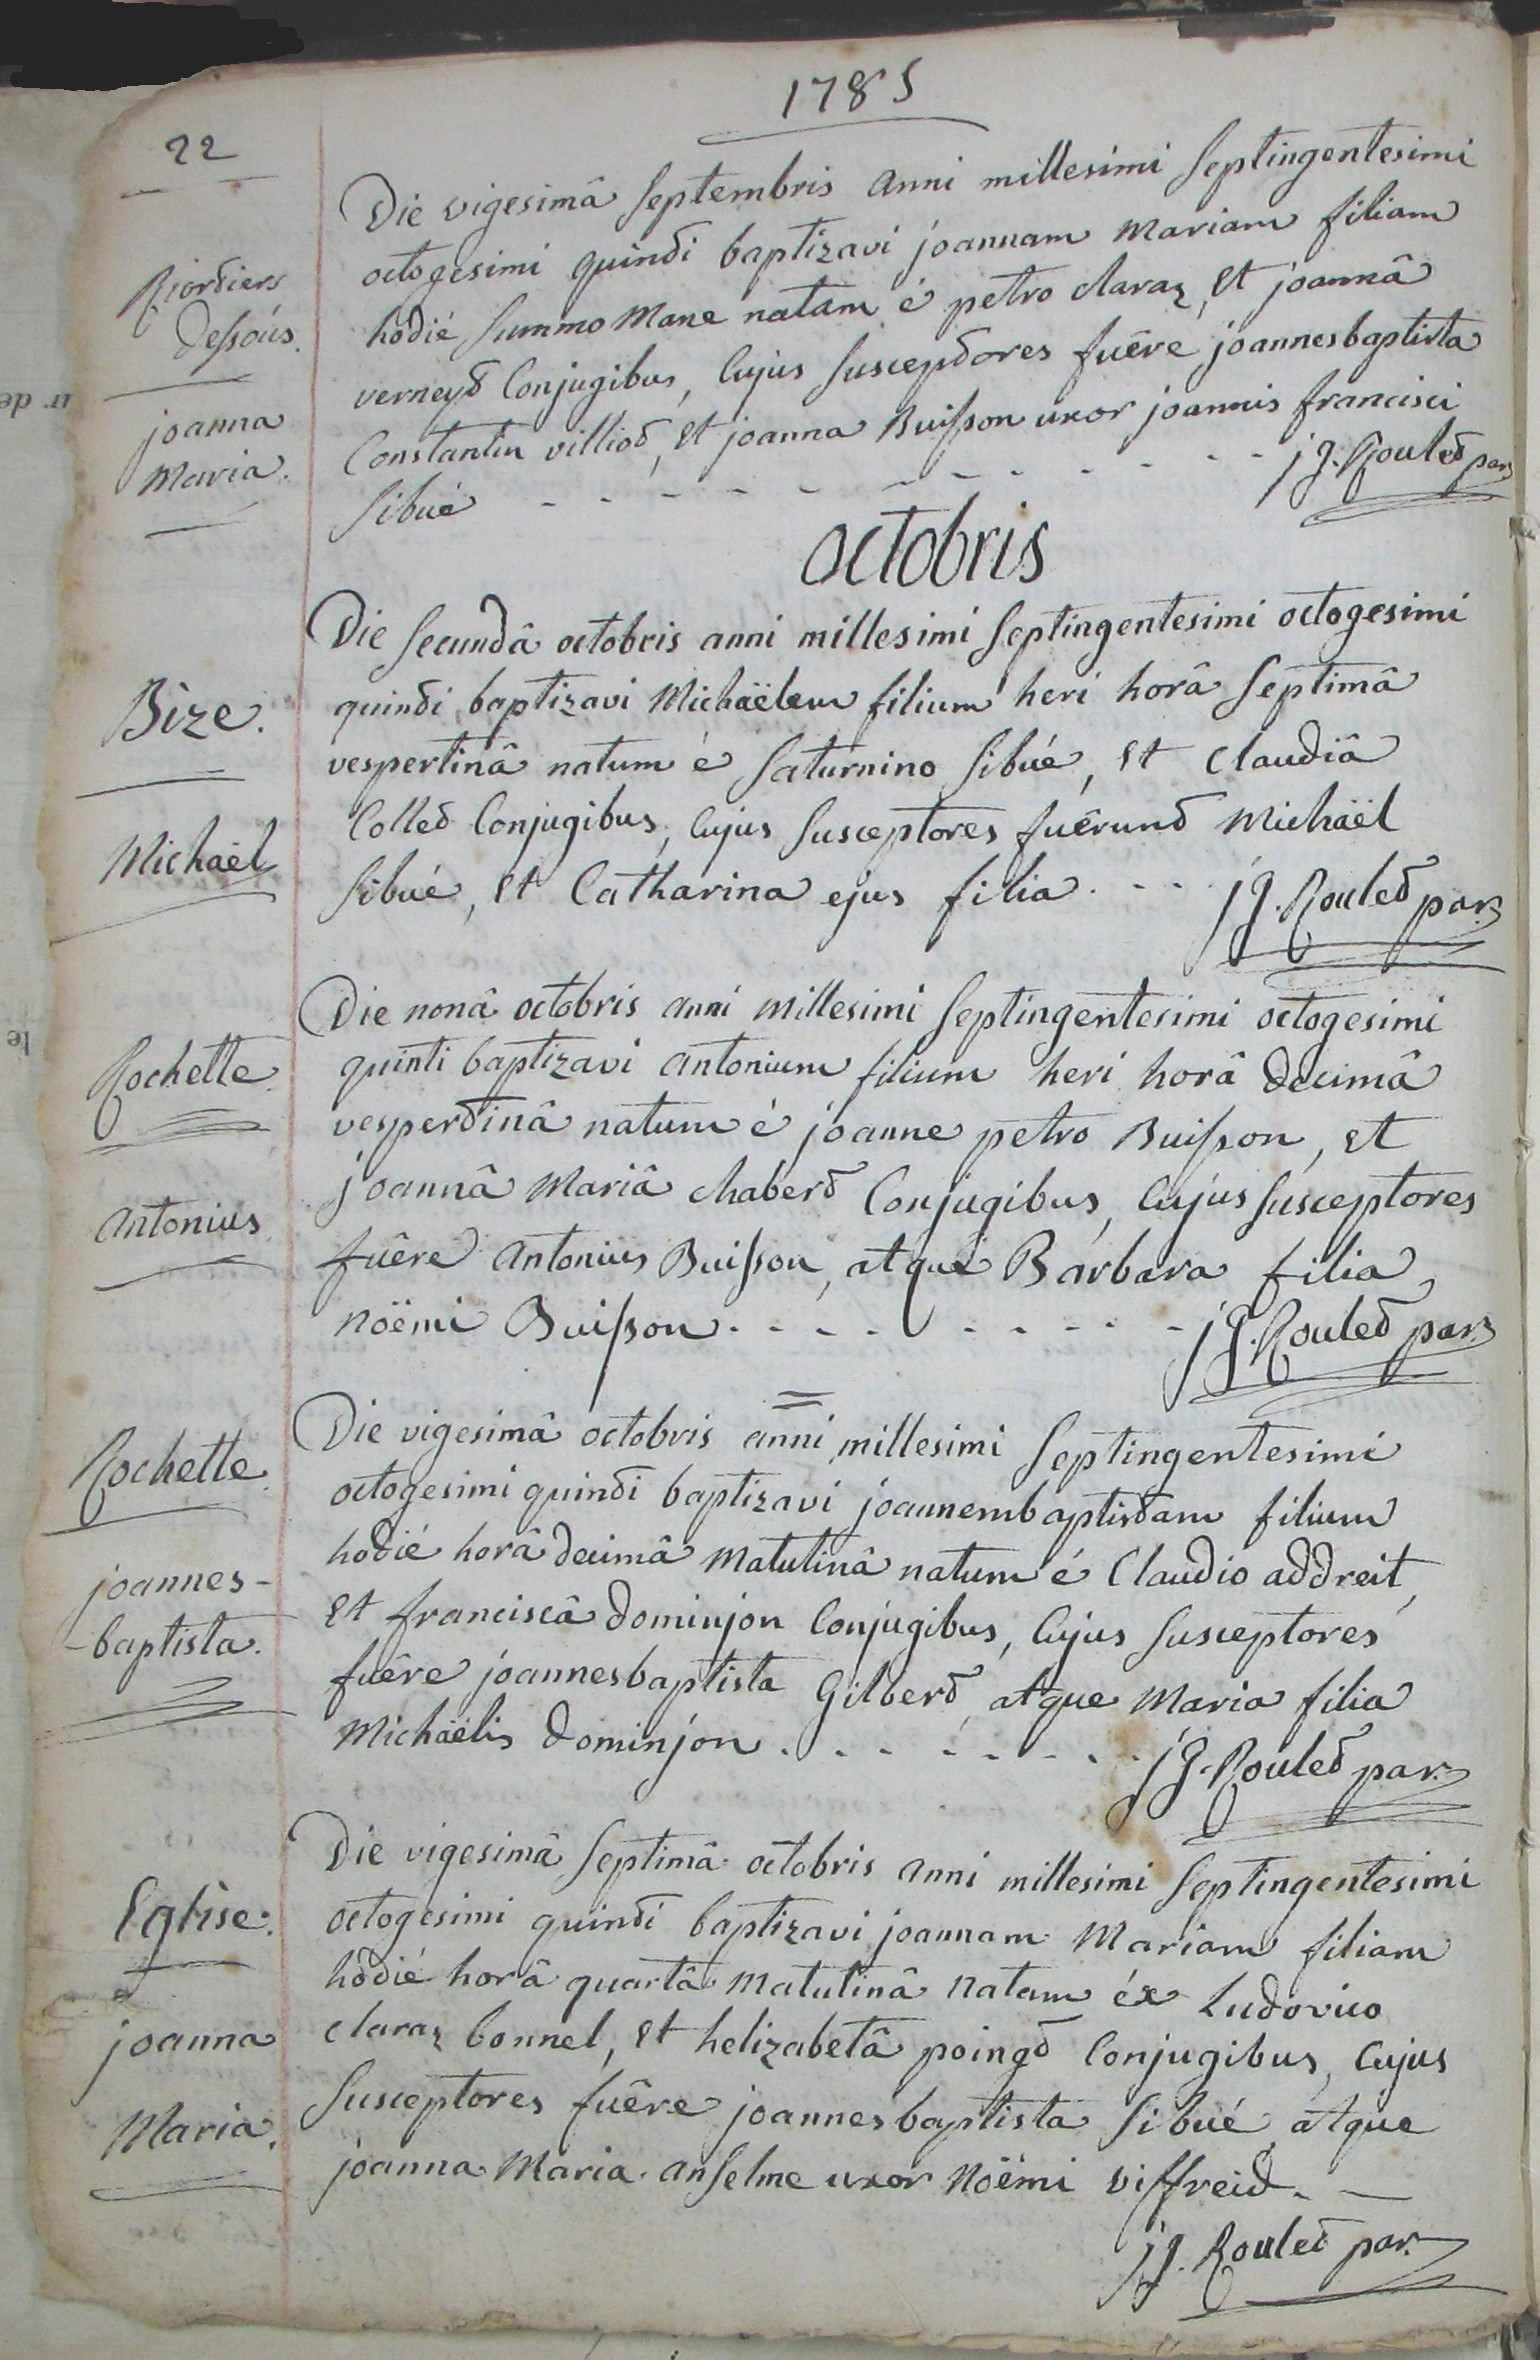 1785
22
Die vigesimâ Septembris anni millesimi Septingentesimi
octogesimi quinti baptizavi joannam mariam filiam
hodié Summo mane natam é petro claraz, et joannâ
verneyt Conjugibus, Cujus Susceptores fuêre joannesbaptista
Constantin villiot, et joanna Buisson uxor joannis francisci
Sibué - - - - - - - - - - - j g. Roulet par
Riortiers
dessous.
joanna
Maria.
octobris
Die Secundâ octobris anni millesimi Septingentesimi octogesimi
quinti baptizavi Michaëlem filium heri horâ Septimâ
vespertinâ natum é Saturnino Sibué, et Claudiâ
Collet Conjugibus, Cujus Susceptores fuêrunt Michaël
Sibué, et Catharina ejus filia. - - j g. Roulet par.
Bize.
Michaël
Die nonâ octobris anni millesimi Septingentesimi octogesimi
quinti baptizavi antonium filium heri horâ decimâ
vespertinâ natum é joanne petro Buisson, et
joannâ Mariâ chabert Conjugibus, Cujus Susceptores
fuêre antonius Buisson, atque Barbara filia
noëmi Buisson - - - - - - - - j g. Roulet par.
Rochette.
antonius.
Die vigesimâ octobris anni millesimi Septingentesimi
octogesimi quinti baptizavi joannembaptistam filium
hodié horâ decimâ matutinâ natum é Claudio addreit,
et franciscâ dominjon Conjugibus, Cujus Susceptores
fuêre joannesbaptista Gilbert, atque Maria filia
Michaëlis dominjon. - - - - - - - j g. Roulet par.
Rochette.
joannes-
-baptista.
Die vigesimâ Septimâ octobris anni millesimi Septingentesimi
octogesimi quinti baptizavi joannam Mariam filiam
hodié horâ quartâ matutinâ natam éx Ludovico
claraz bonnel, et helizabetâ poingt Conjugibus, Cujus
Susceptores fuêre joannesbaptista Sibué, atque
joanna Maria anselme uxor Noëmi viffreid. —
j g. Roulet par.
Eglise.
joanna
Maria.